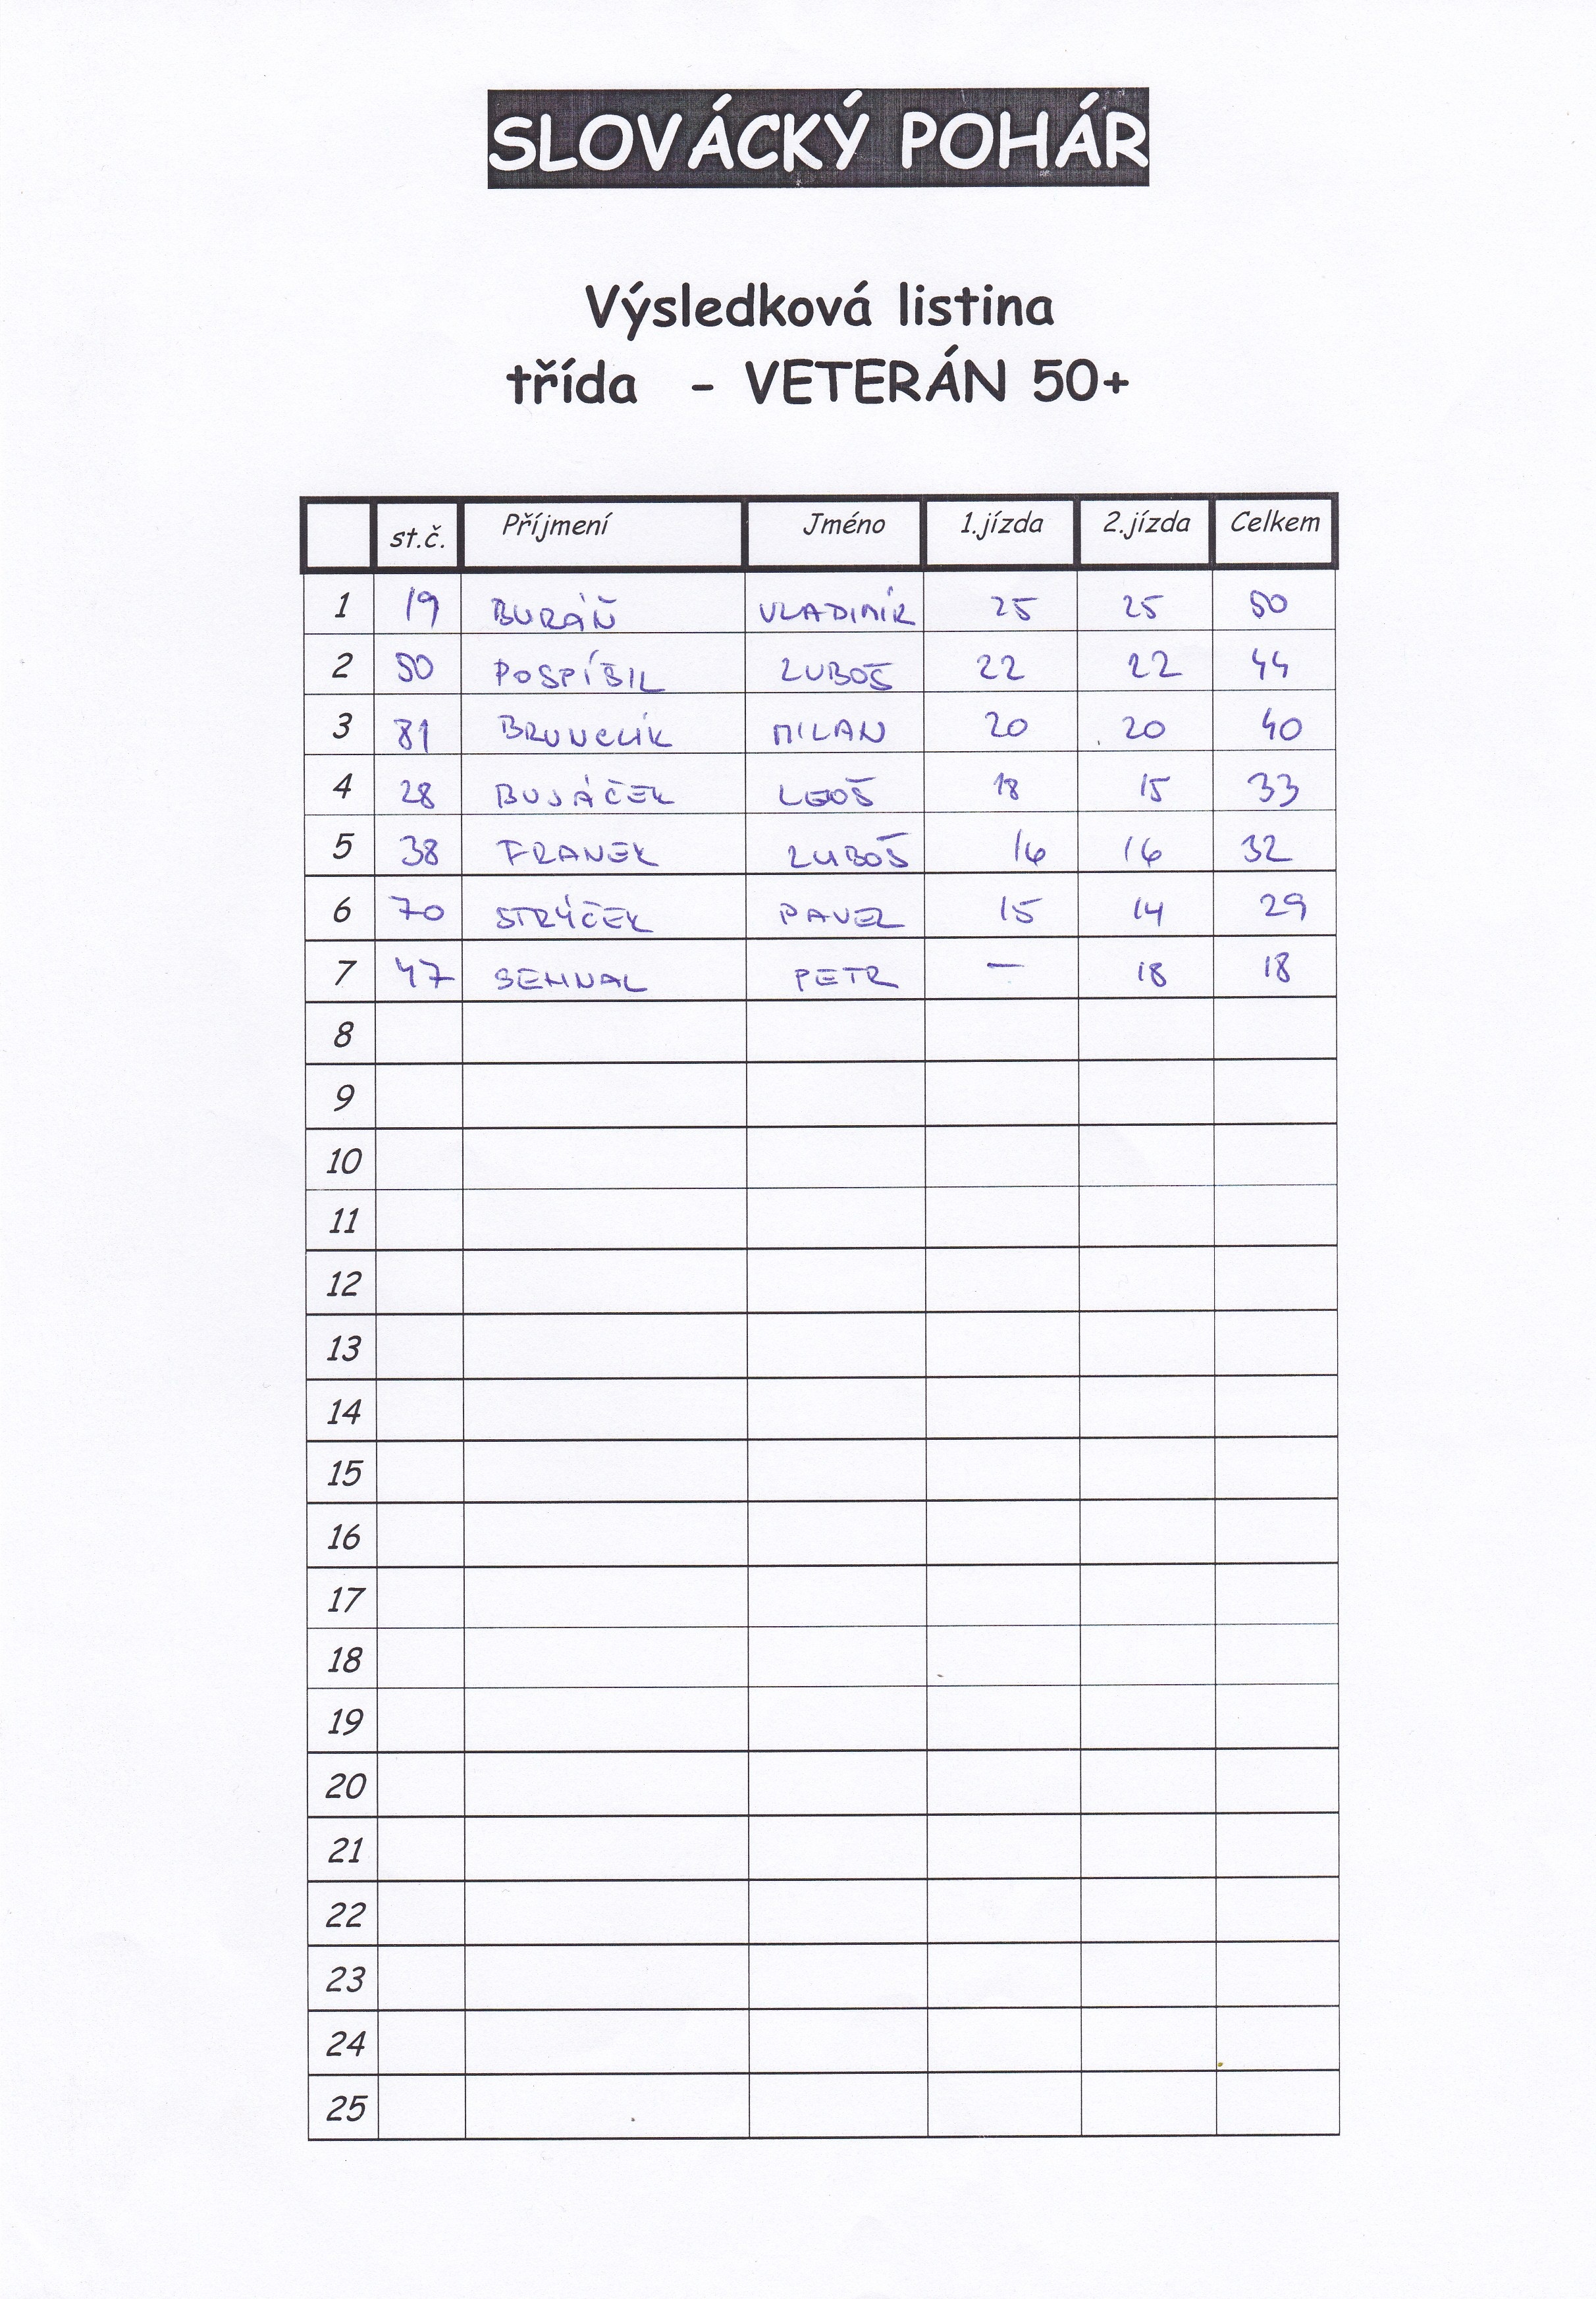 SLOVÁCKÝ POHÁR
Výsledková listina
třída - VETERÁN 50+
st.č. Příjmení Jméno 1.jízda 2.jízda Celkem
1 19 BURÁŇ VLADIMÍR 25 25 50
2 50 POSPÍŠIL LUBOŠ 22 22 44
3 81 BRUNCLÍK MILAN 20 20 40
4 28 BUJÁČEK LEOŠ 18 15 33
5 38 FRANEK LUBOŠ 16 16 32
6 70 STRÝČEK PAVEL 15 14 29
7 47 SEHNAL PETR — 18 18
8
9
10
11
12
13
14
15
16
17
18
19
20
21
22
23
24
25